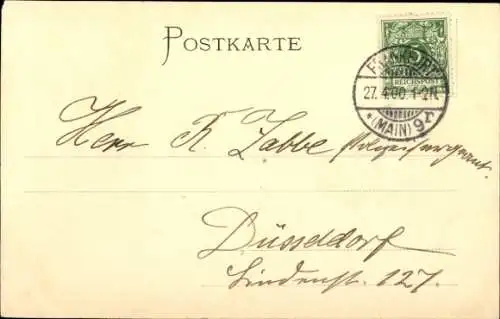 POSTKARTE
5
REICHSPOST
FRANKFURT
27.4.00. 1-2N.
* (MAIN) 9
Herr R. Labbe Polizeisergeant.
Düsseldorf
Lindenst. 127.